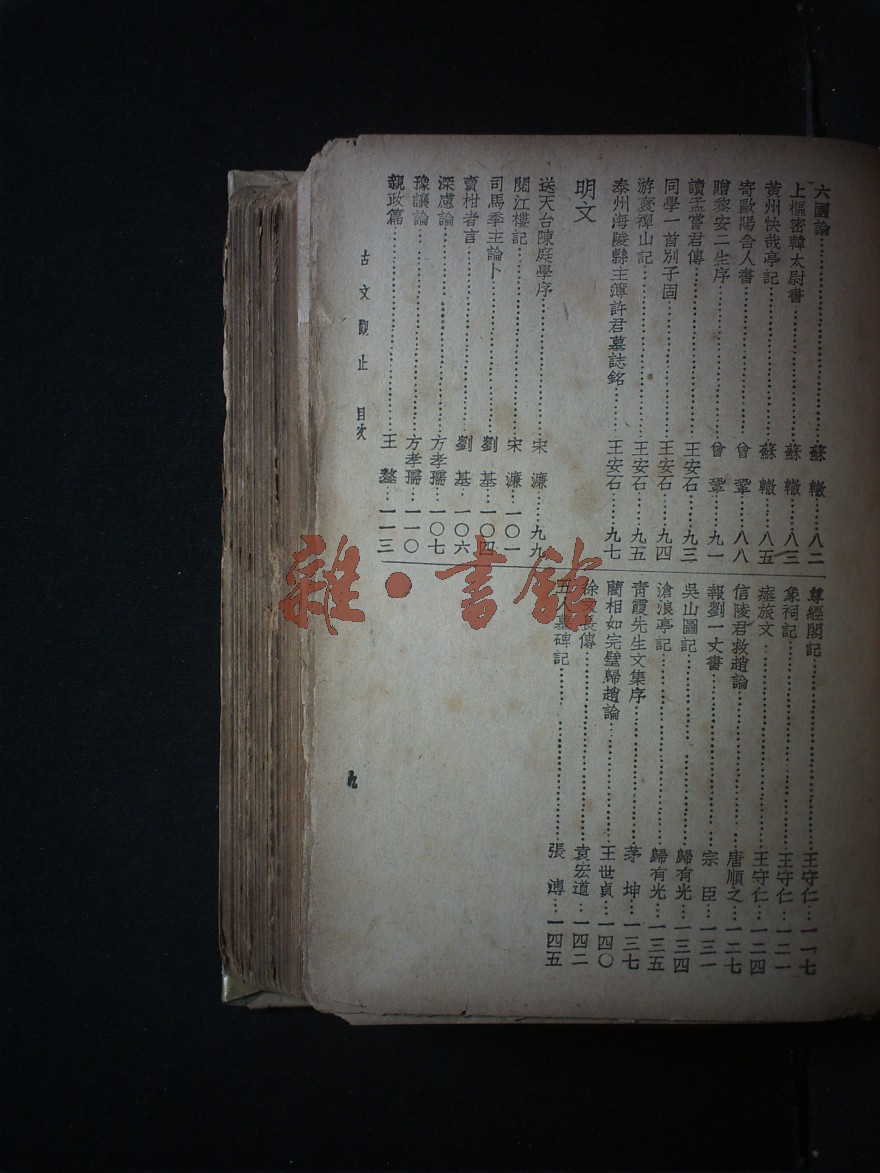 六國論……蘇轍…八二
上樞密韓太尉書……蘇轍…八三
黃州快哉亭記……蘇轍…八五
寄歐陽舍人書……曾鞏…八八
贈黎安二生序……曾鞏…九一
讀孟嘗君傳……王安石…九三
同學一首別子固……王安石…九四
游褒禪山記……王安石…九五
泰州海陵縣主簿許君墓誌銘……王安石…九七
明文
送天台陳庭學序……宋濂…九九
閱江樓記……宋濂…一〇一
司馬季主論卜……劉基…一〇四
賣柑者言……劉基…一〇六
深慮論……方孝孺…一〇七
豫讓論……方孝孺…一一〇
親政篇……王鏊…一一三
尊經閣記……王守仁…一一七
象祠記……王守仁…一二一
瘞旅文……王守仁…一二四
信陵君救趙論……唐順之…一二七
報劉一丈書……宗臣…一三一
吳山圖記……歸有光…一三四
滄浪亭記……歸有光…一三五
青霞先生文集序……茅坤…一三七
藺相如完璧歸趙論……王世貞…一四〇
徐文長傳……袁宏道…一四二
五人墓碑記……張溥…一四五
古文觀止 目次
九
雜·書館